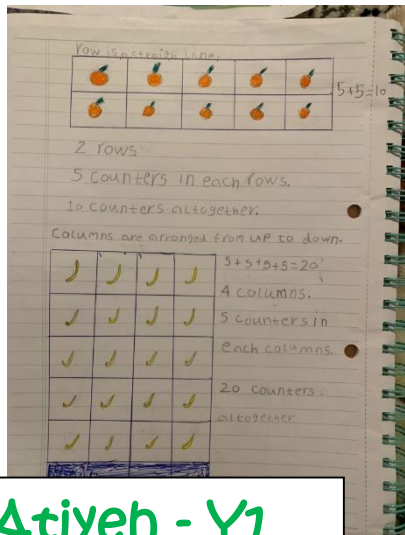 row is a straigs line.
5+5=10
2 rows
5 counters in each rows.
10 counters altogether.
Columns are arranged from up to down.
5+5+5+5=20
4 columns.
5 counters in
each columns.
20 counters
altogether
Atiyeh - Y1